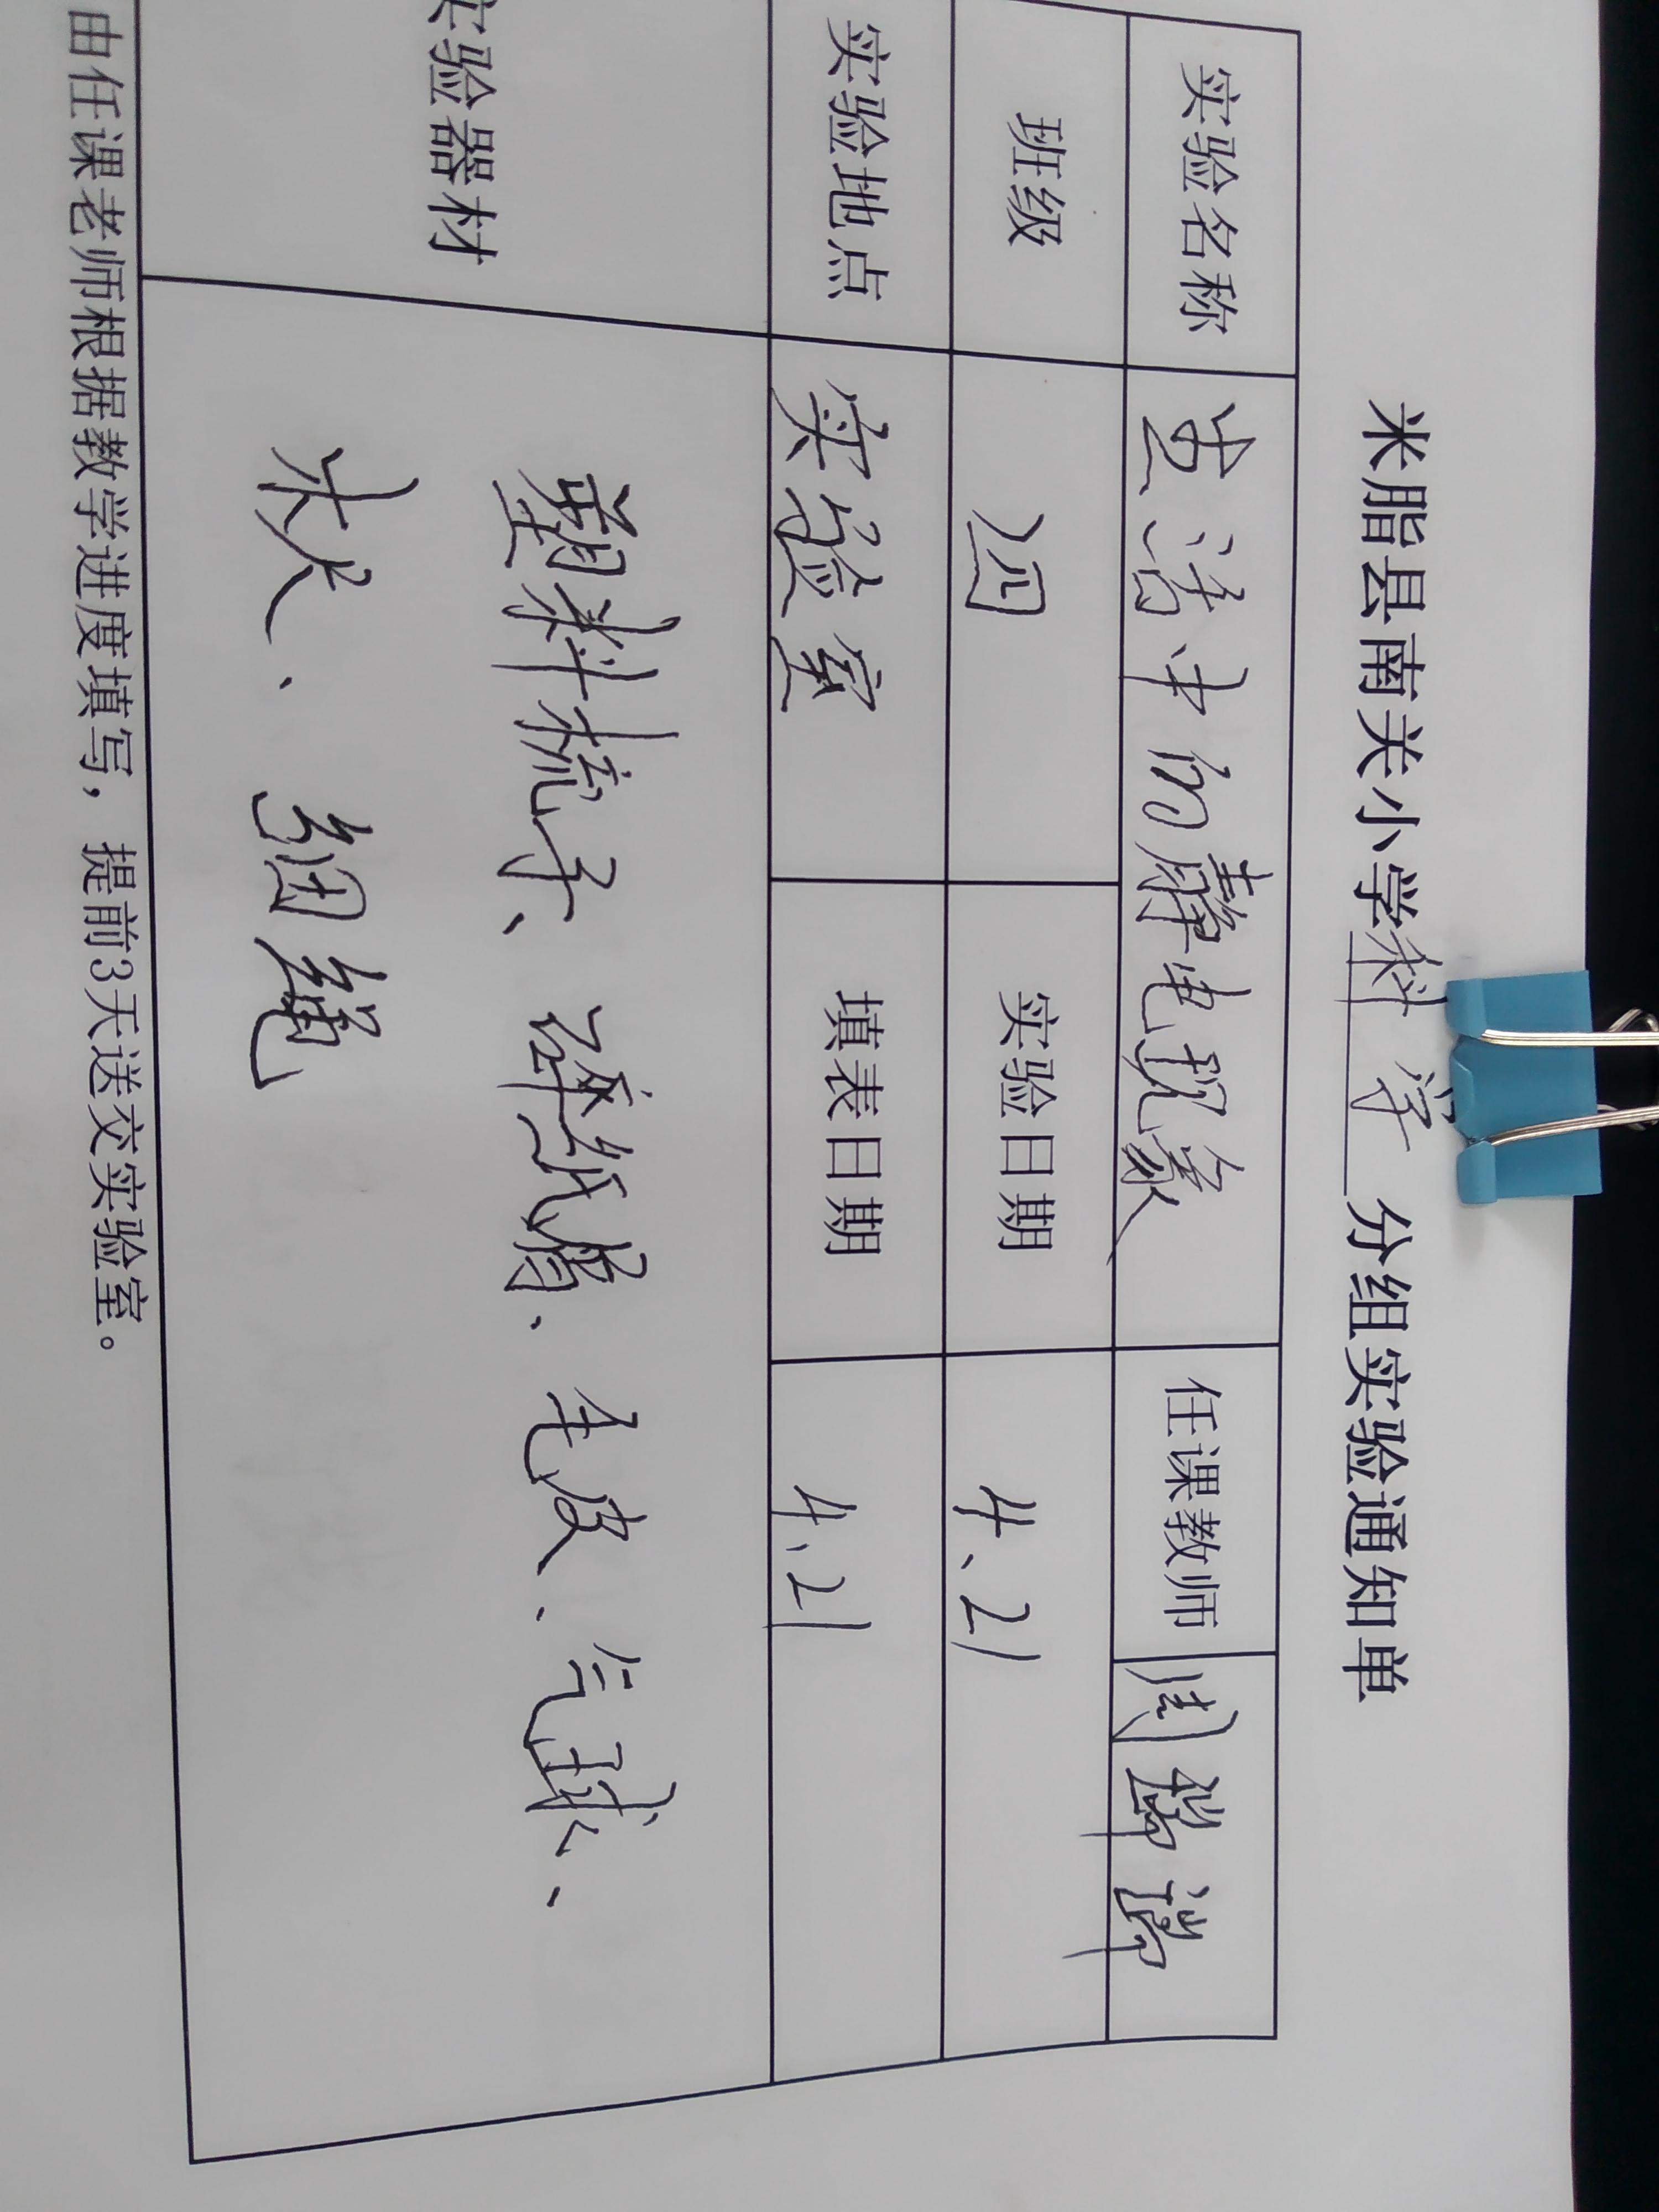 米脂县南关小学科学分组实验通知单
实验名称 生活中的静电现象 任课教师 周瑞瑞
班级 四 实验日期 4.21
实验地点 实验室 填表日期 4.21
实验器材 塑料梳子、碎纸屑、毛皮、气球、
木尺、细绳
由任课老师根据教学进度填写，提前3天送交实验室。